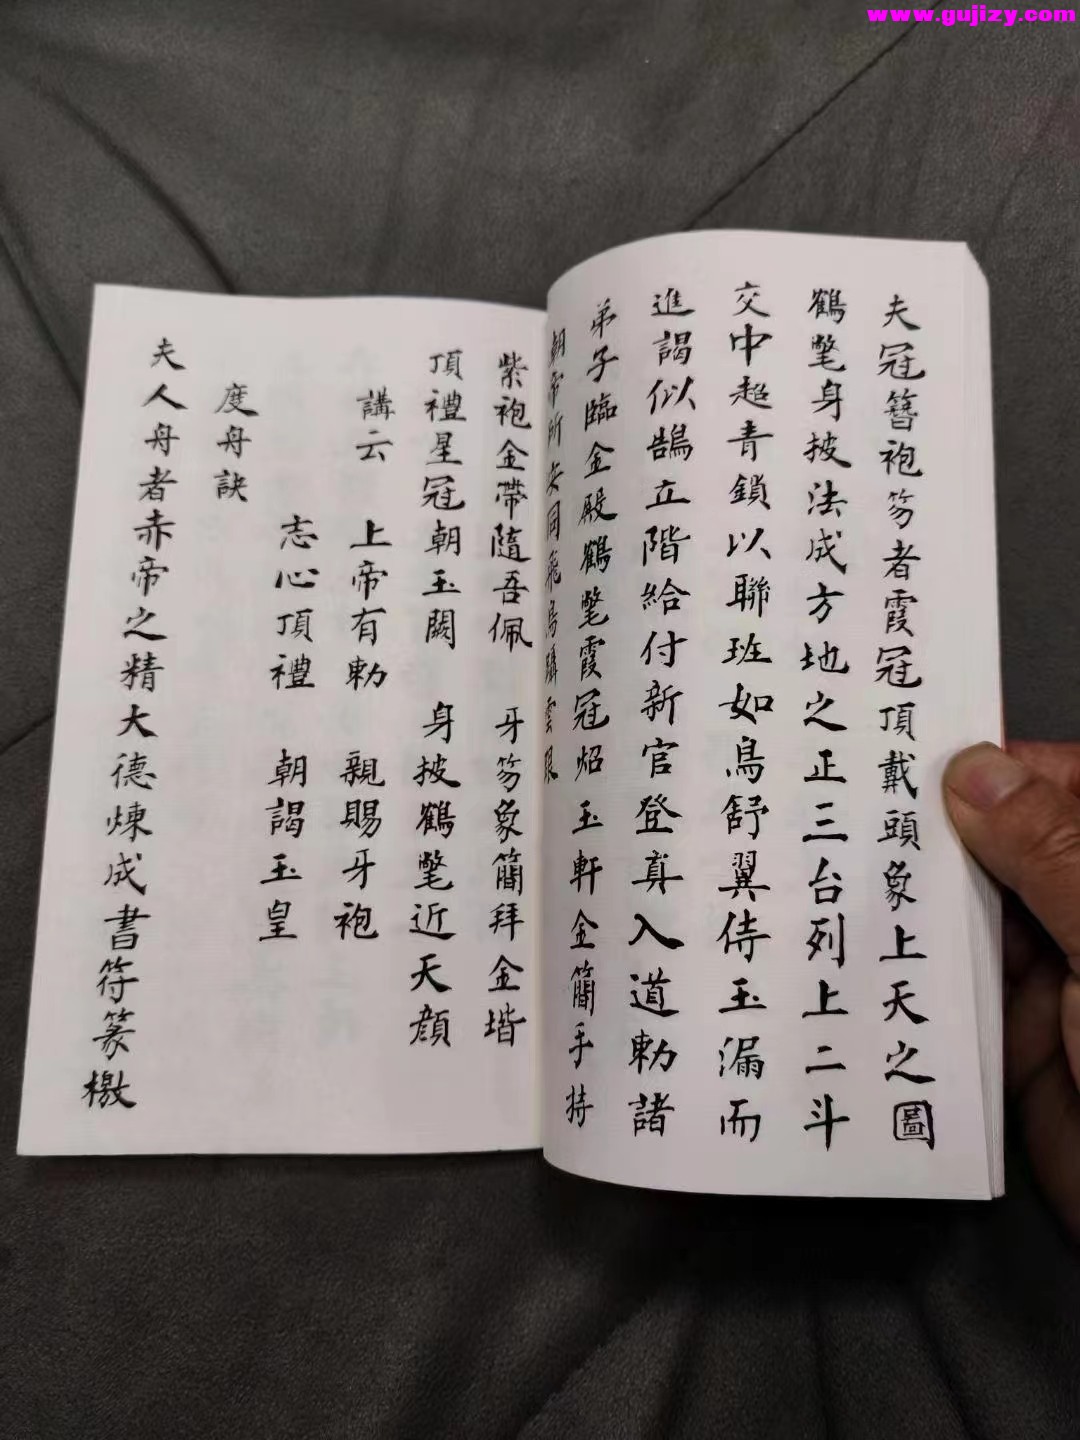 www.gujizy.com
夫冠簪袍笏者霞冠頂戴頭象上天之圓
鶴氅身披法成方地之正三台列上二斗
交中超青鎖以聯班如鳥舒翼侍玉漏而
進謁似鵠立階給付新官登真入道勅諸
弟子臨金殿鶴氅霞冠炤玉軒金簡手持
朝帝所
同飛鳥躡雲
紫袍金帶隨吾佩 牙笏象簡拜金堦
頂禮星冠朝玉闕 身披鶴氅近天顔
講云 上帝有勅 親賜牙袍
志心頂禮 朝謁玉皇
度舟訣
夫人舟者赤帝之精大德煉成書符篆檄